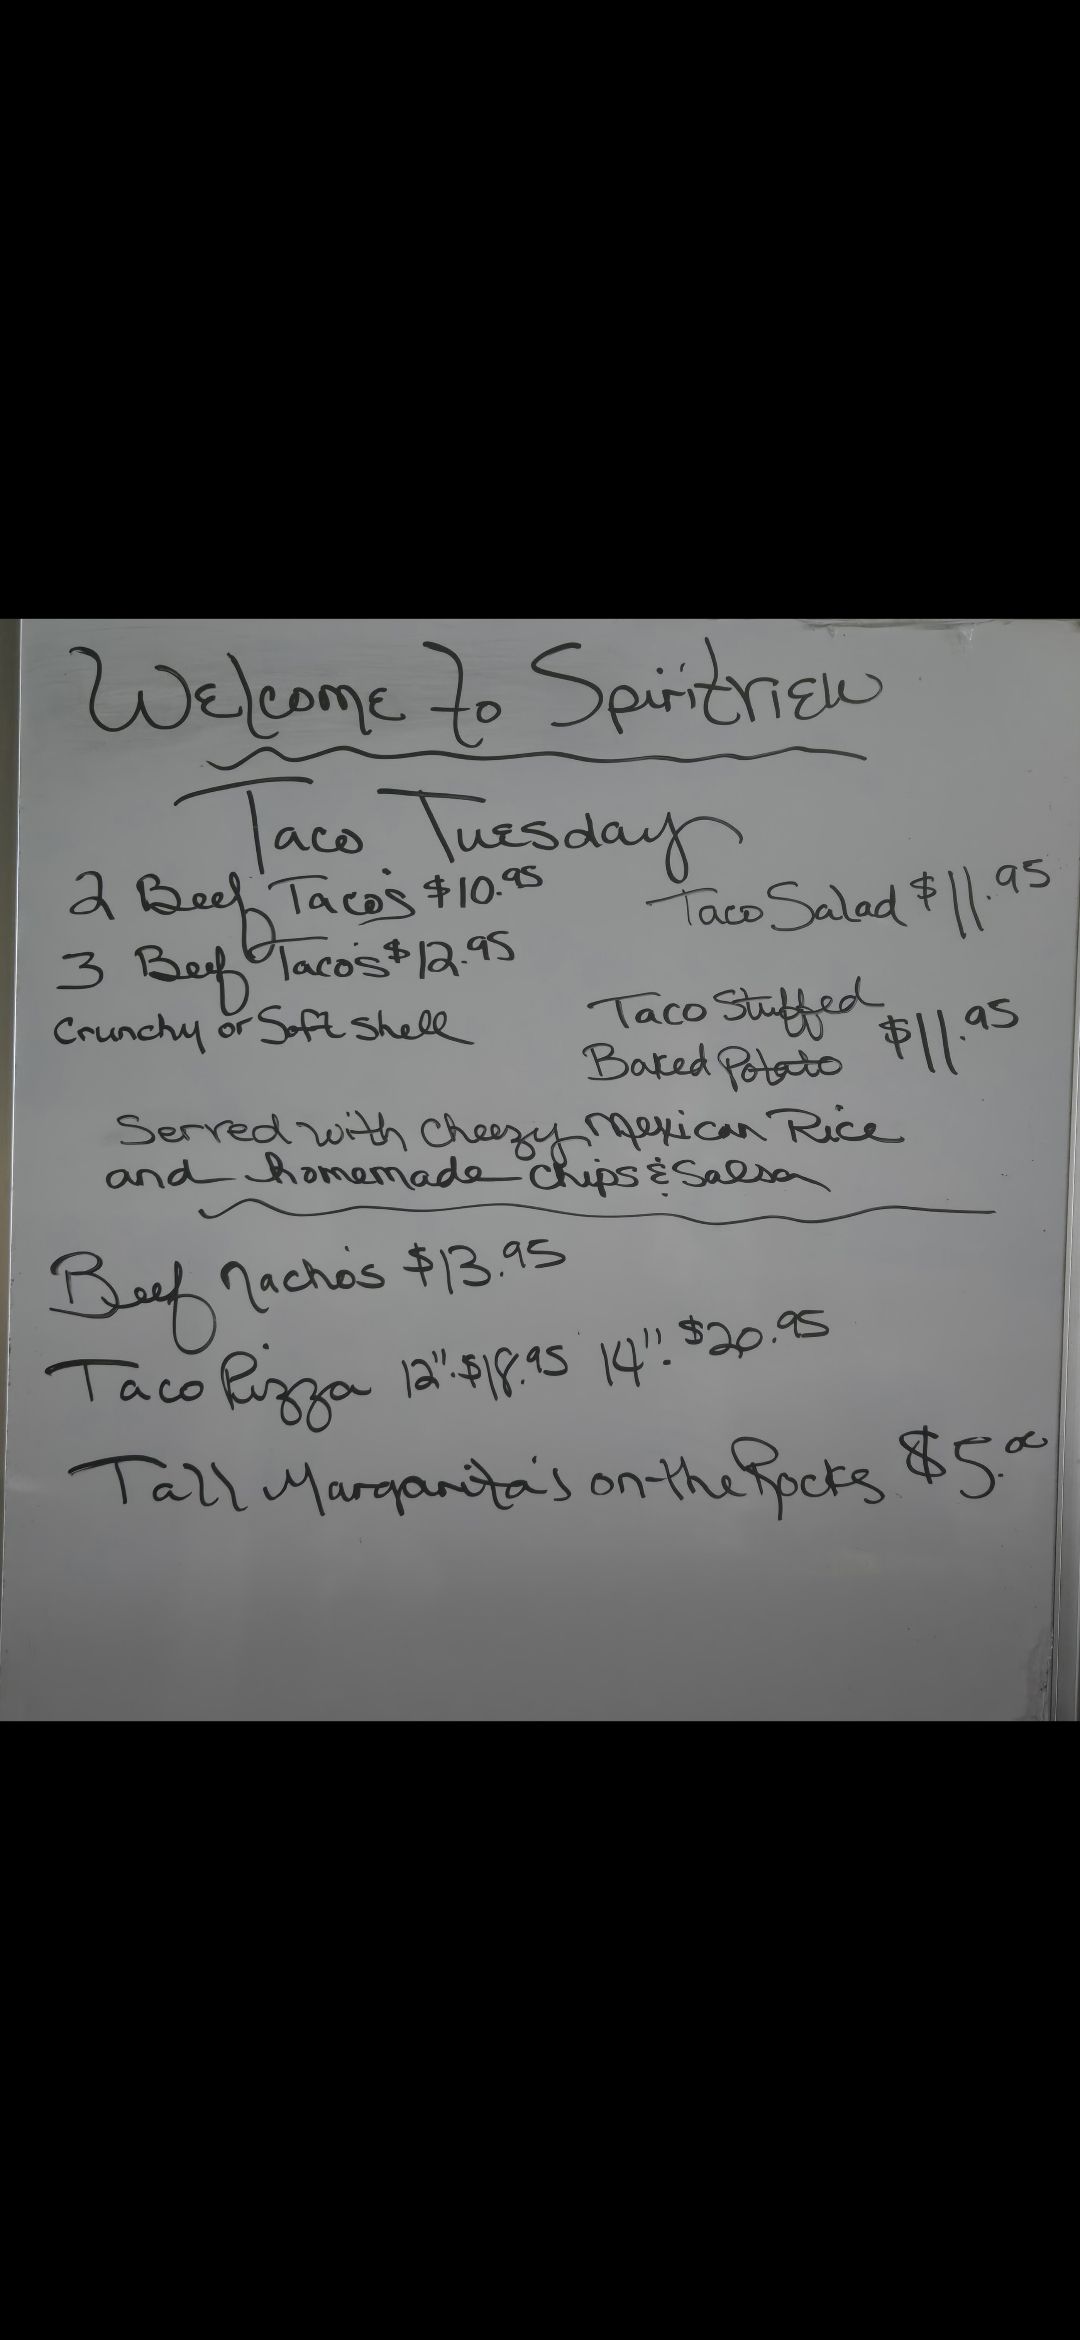 Welcome to Spiritview
Taco Tuesday
2 Beef Taco's $10.95
3 Beef Taco's $12.95
Crunchy or Soft shell
Taco Salad $11.95
Taco Stuffed
Baked Potato $11.95
Served with Cheezy Mexican Rice
and homemade Chips & Salsa
Beef Nacho's $13.95
Taco Pizza 12". $18.95 14". $20.95
Tall Margarita's on-the Rocks $5.00